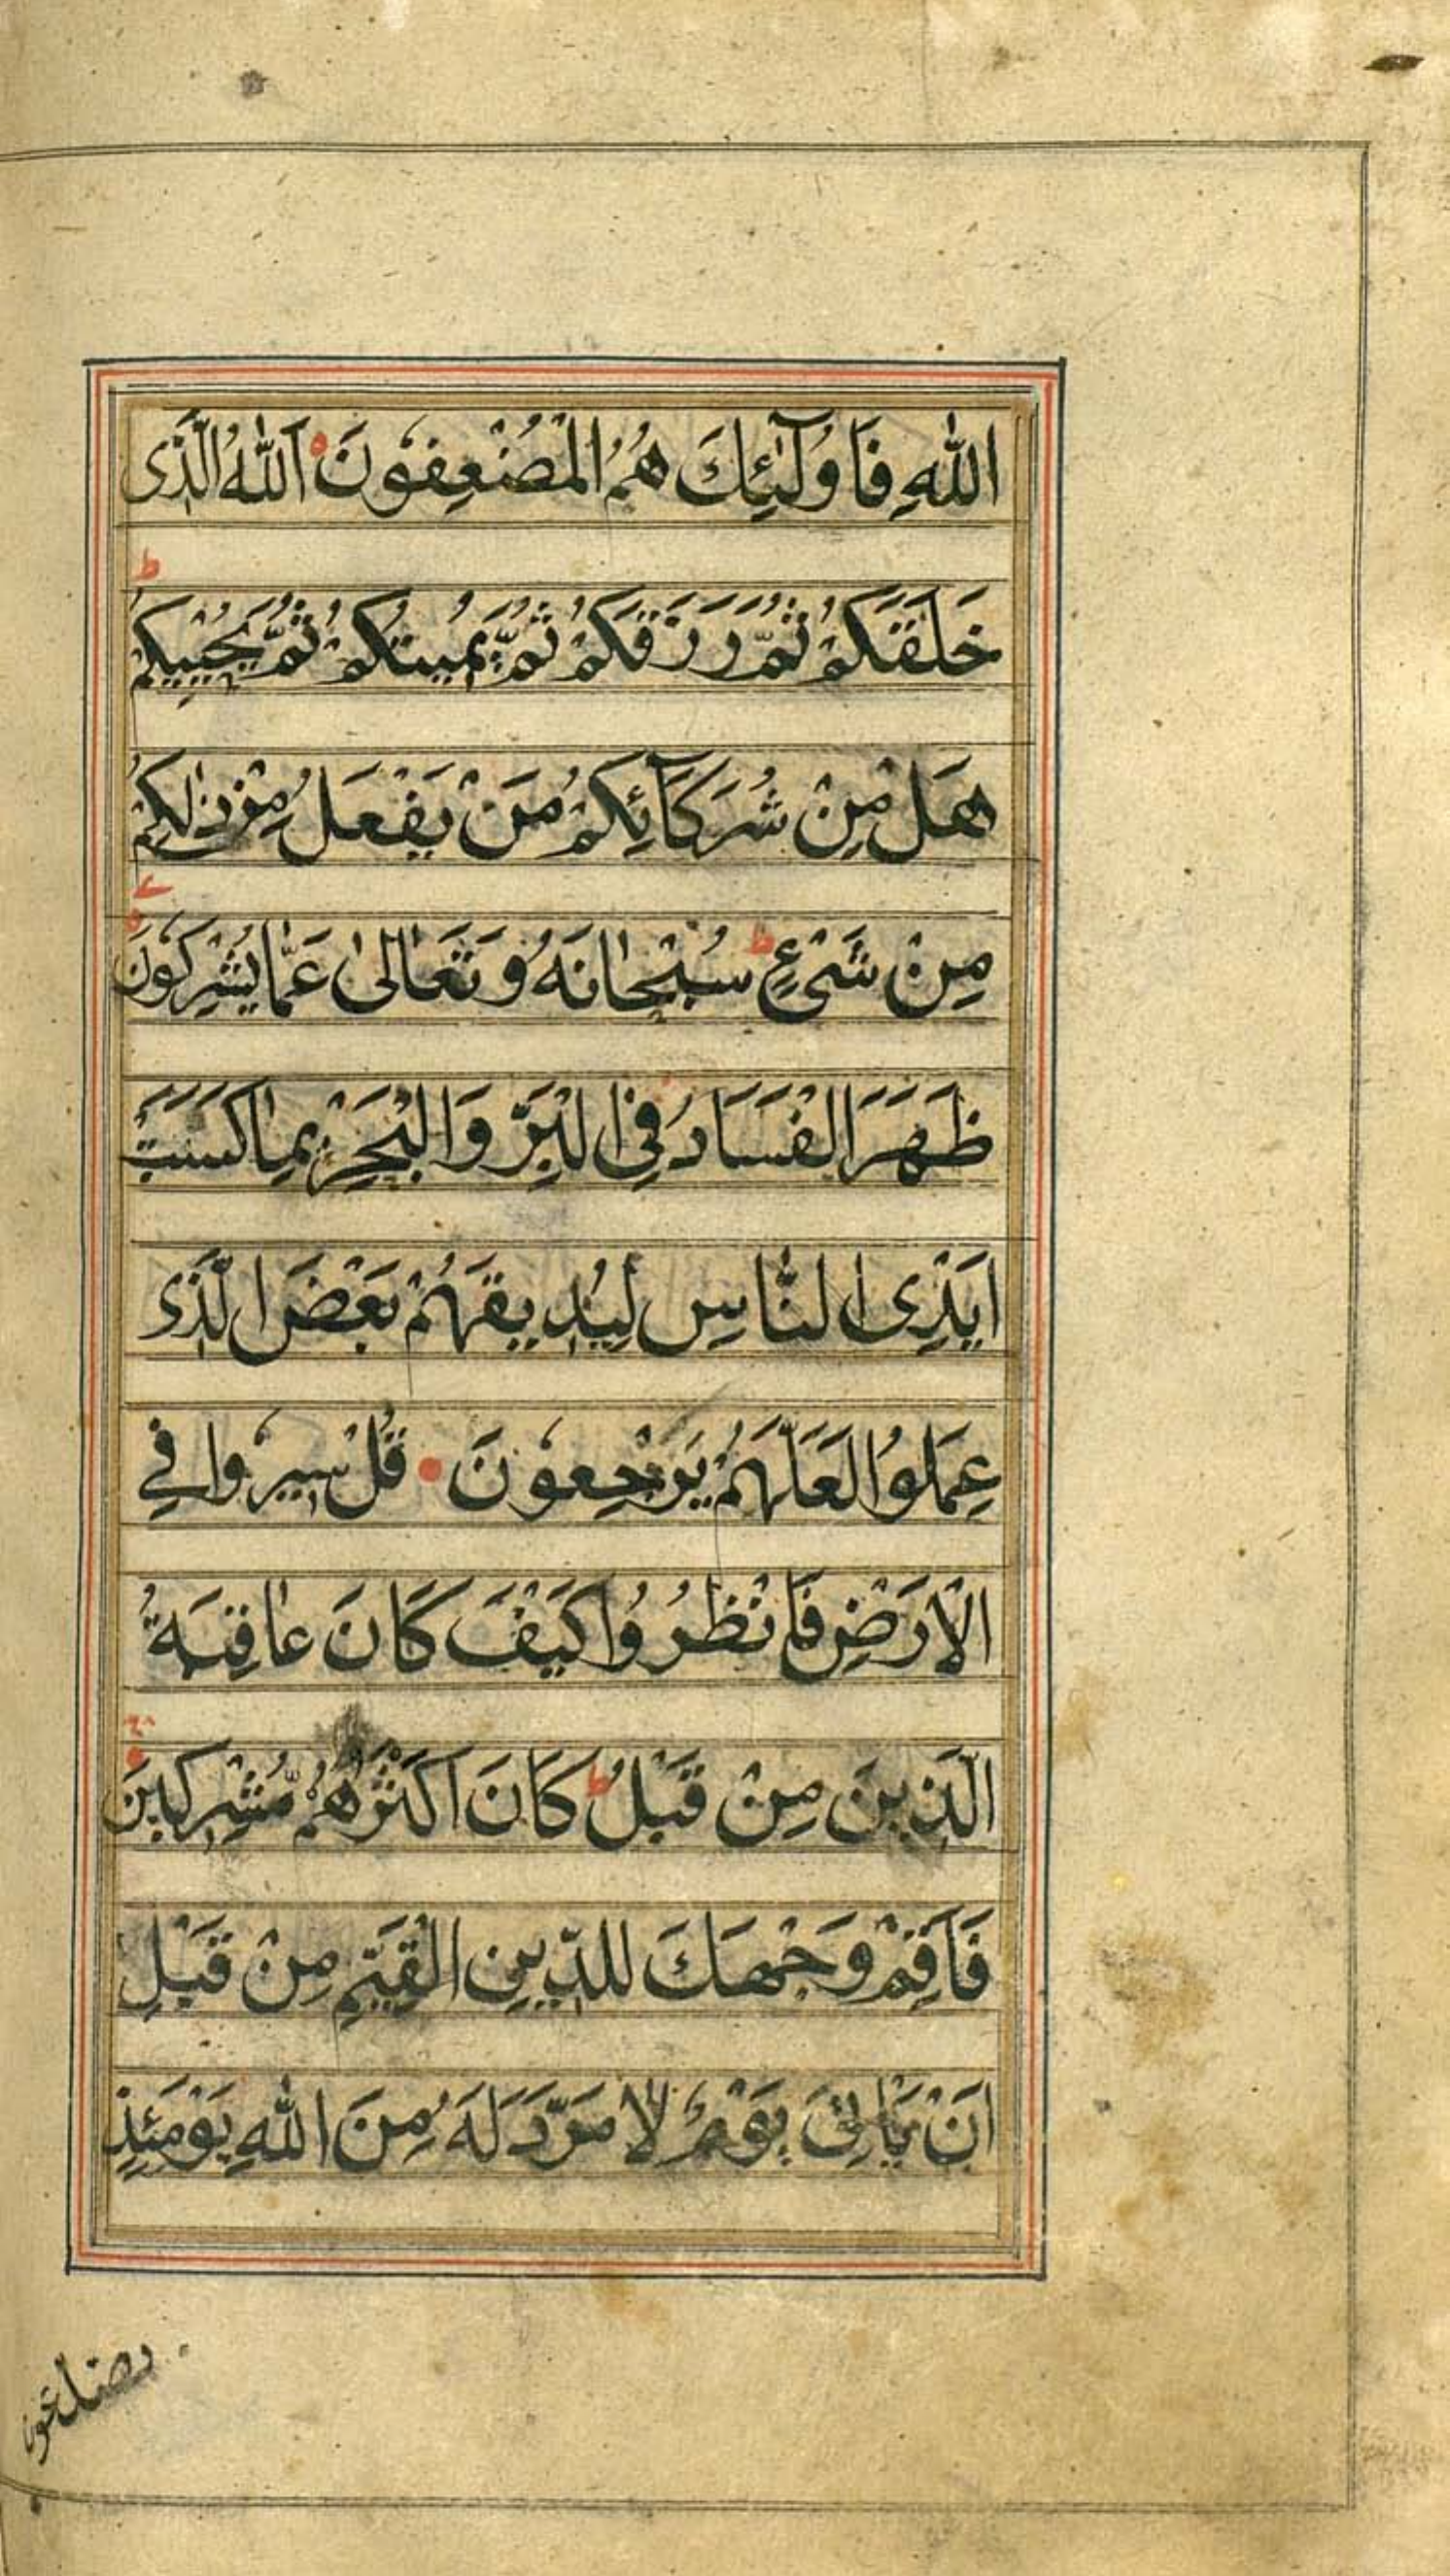 اللّٰهِ فَاُولٰٓئِكَ هُمُ الْمُضْعِفُوْنَ اَللّٰهُ الَّذٖى
خَلَقَكُمْ ثُمَّ رَزَقَكُمْ ثُمَّ يُمِيتُكُمْ ثُمَّ يُحْيِيكُمْ ط
هَلْ مِنْ شُرَكَآئِكُمْ مَنْ يَفْعَلُ مِنْ ذٰلِكُمْ
مِنْ شَىْءٍ ط سُبْحَانَهُ وَتَعَالىٰ عَمَّا يُشْرِكُوْنَ
ظَهَرَ الْفَسَادُ فِى الْبَرِّ وَالْبَحْرِ بِمَا كَسَبَتْ
اَيْدِى النَّاسِ لِيُذٖيقَهُمْ بَعْضَ الَّذٖى
عَمِلُوا لَعَلَّهُمْ يَرْجِعُوْنَ قُلْ سٖيرُوْا فِى
الْاَرْضِ فَانْظُرُوْا كَيْفَ كَانَ عَاقِبَةُ
الَّذٖينَ مِنْ قَبْلُ ط كَانَ اَكْثَرُهُمْ مُّشْرِكٖينَ
فَاَقِمْ وَجْهَكَ لِلدّٖينِ الْقَيِّمِ مِنْ قَبْلِ
اَنْ يَاْتِىَ يَوْمٌ لَا مَرَدَّ لَهُ مِنَ اللّٰهِ يَوْمَئِذٍ
يصدعون